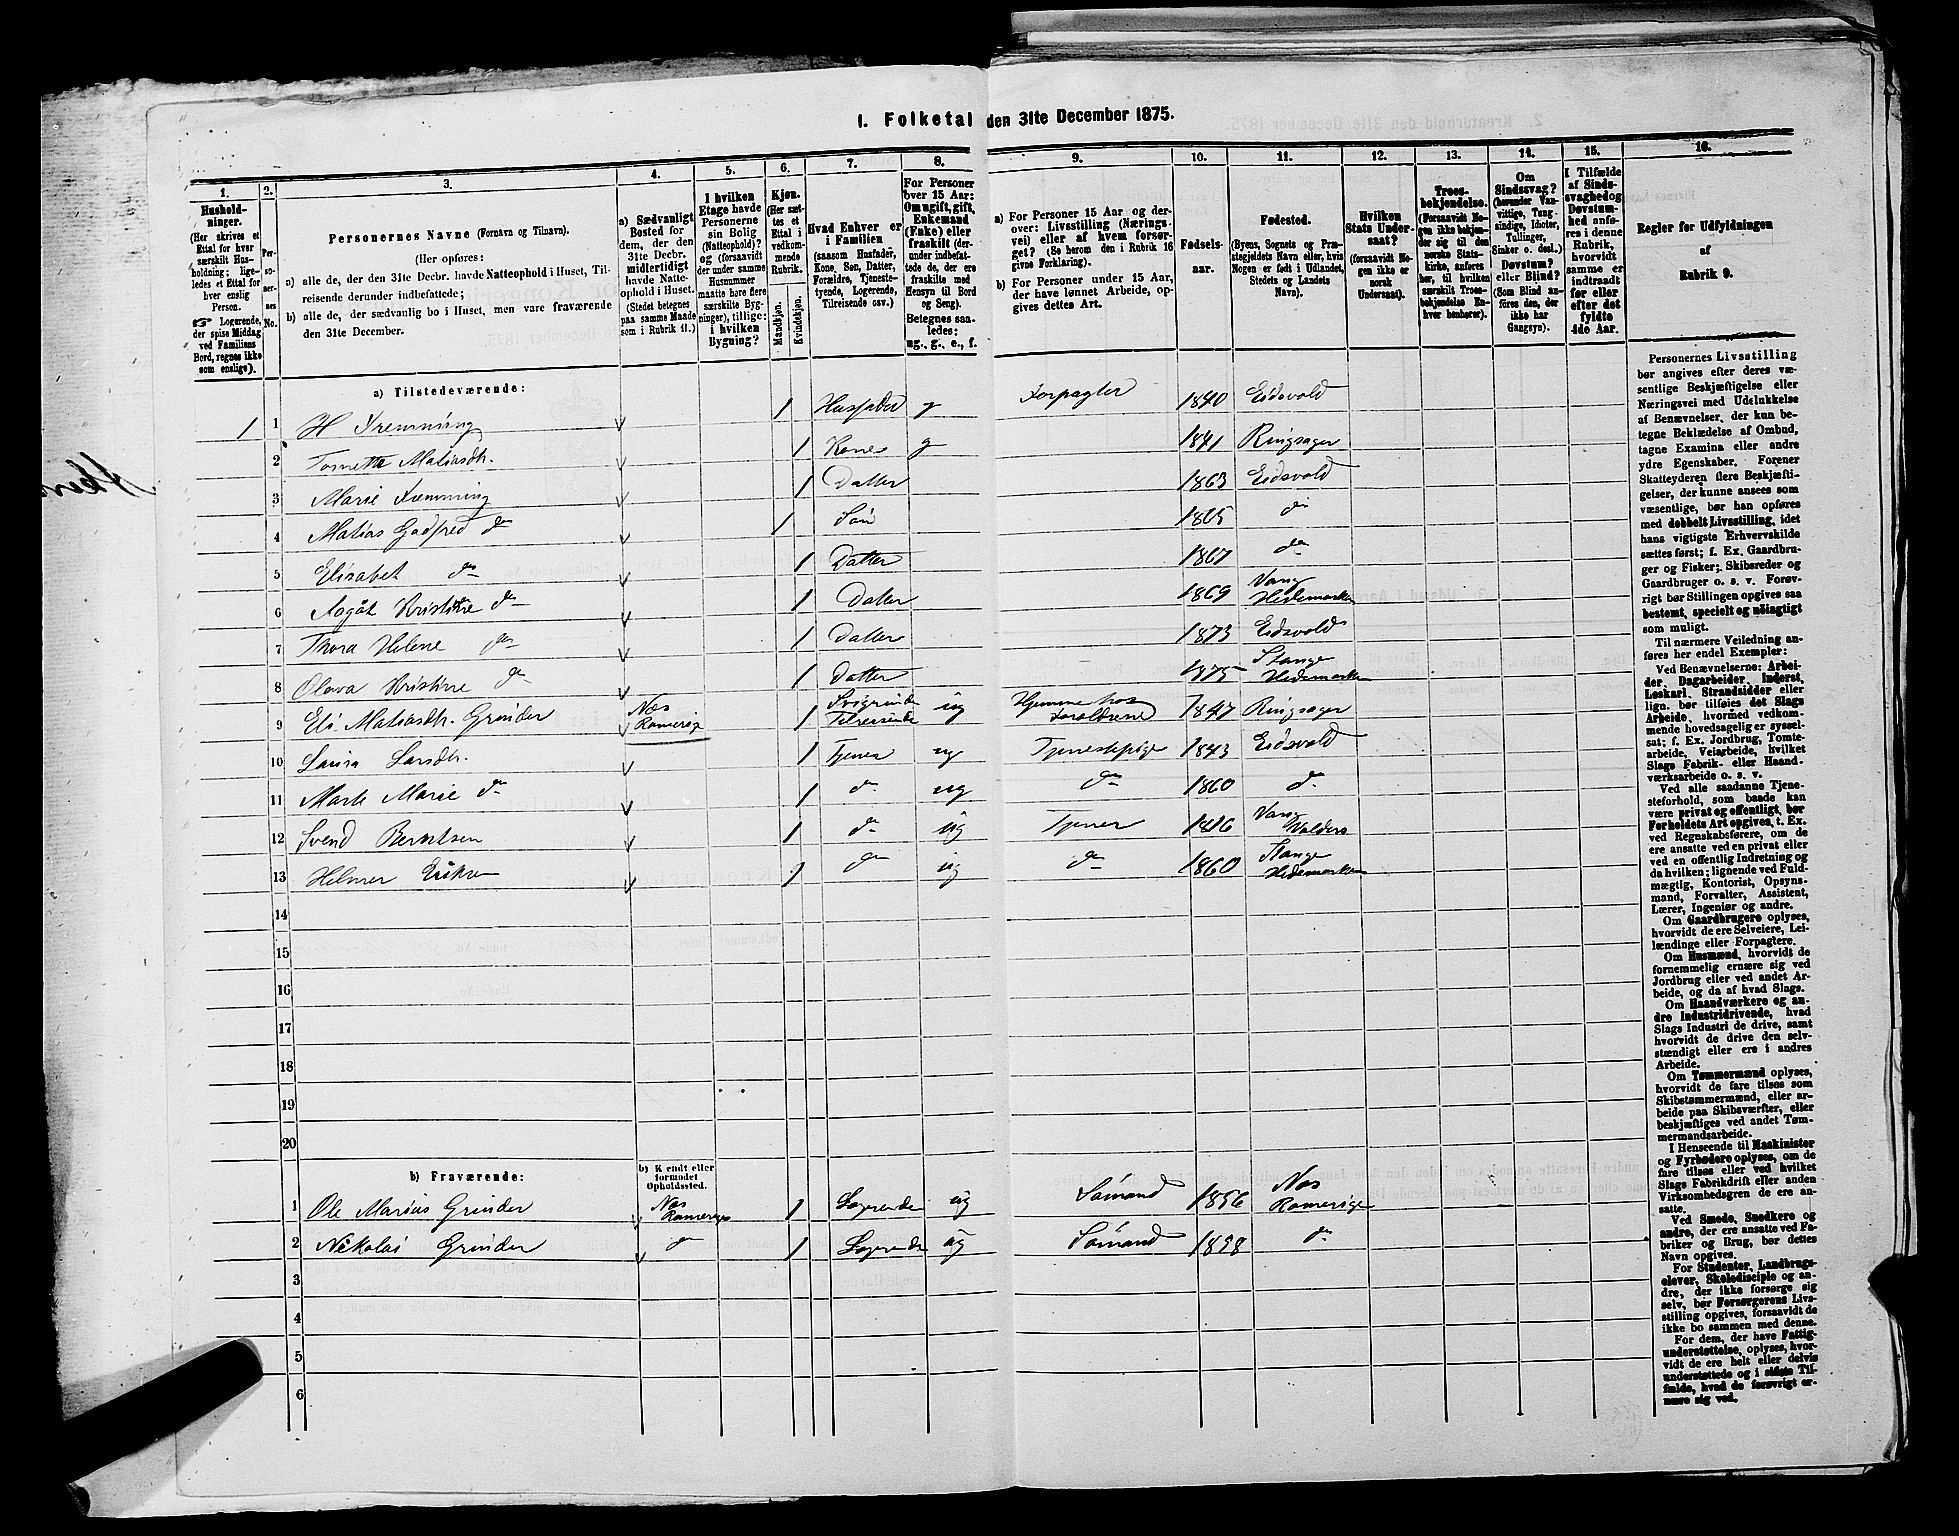 1. Folketal den 31te December 1875.
1. 2. 3. 4. 5. 6. 7. 8. 9. 10. 11. 12. 13. 14. 15. 16.
Hushold-
ninger.
(Her skrives et
Ettal for hver
særskilt Hus-
holdning; lige-
ledes et Ettal for
hver enslig
Person.
Logerende,
der spise Middag
ved Familiens
Bord, regnes ikke
som enslige).
Per-
so-
ner-
nes
No.
Personernes Navne (Fornavn og Tilnavn).
(Her opføres:
a) alle de, der den 31te Decbr. havde Natteophold i Huset, Til-
reisende derunder indbefattede;
b) alle de, der sædvanlig bo i Huset, men vare fraværende
den 31te December.
a) Sædvanligt
Bosted for
dem, der den
31te Decbr.
midlertidigt
havde Natte-
ophold i Huset.
(Stedet betegnes
paa samme Maade
som i Rubrik 11.)
I hvilken
Etage havde
Personerne
sin Bolig
(Natteophold)?
og (forsaavidt
der under samme
Husnummer
maatte høre flere
særskilte Byg-
ninger), tillige:
i hvilken
Bygning?
Kjøn.
(Her sæt-
tes et
Ettal i
vedkom-
mende
Rubrik.
Mandkjøn.
Kvindekjøn.
Hvad Enhver er
i Familien
(saasom Husfader,
Kone, Søn, Datter,
Forældre, Tjeneste-
tyende, Logerende,
Tilreisende osv.)
For Personer
over 15 Aar:
Om ugift, gift,
Enkemand
(Enke) eller
fraskilt (der-
under indbefat-
tede de, der ere
fraskilte med
Hensyn til Bord
og Seng).
Betegnes saa-
ledes:
ug., g., e., f.
a) For Personer 15 Aar og der-
over: Livsstilling (Nærings-
vei) eller af hvem forsør-
get? (Se herom den i Rubrik 16
givne Forklaring).
b) For Personer under 15 Aar,
der have lønnet Arbeide, op-
gives dettes Art.
Fødsels-
aar.
Fødested.
(Byens, Sognets og Præ-
stegjeldets Navn eller, hvis
Nogen er født i Udlandet,
Stedets og Landets
Navn).
Hvilken
Stats Under-
saat?
(forsaavidt No-
gen ikke er
norsk
Undersaat).
Troes-
bekjendelse.
(Forsaavidt No-
gen ikke bekjen-
der sig til den
norske Stats-
kirke, anføres
her, til hvilken
særskilt Troes-
bekjendelse En-
hver henhører).
Om
Sindssvag?
(herunder Van-
vittige, Tung-
sindige, Idioter,
Tullinger,
Sinker o. desl.).
Døvstum?
eller Blind?
(Som Blind an-
føres den, der
ikke har
Gangsyn).
I Tilfælde
af Sinds-
svaghed og
Døvstum-
hed anfø-
res i denne
Rubrik,
hvorvidt
samme er
indtraadt
før eller
efter det
fyldte
4de Aar.
Regler for Udfyldningen
af
Rubrik 9.
a) Tilstedeværende:
1 1 H Fremming 1 Husfader g Forpagter 1840 Eidsvold
2 Tomette Matiasdtr. 1 Kone g 1841 Ringsager
3 Marie Fremming 1 Datter 1863 Eidsvold
4 Matias Godfred do 1 Søn 1865 do
5 Elisabet do 1 Datter 1867 do
6 Agåt Kristine do 1 Datter 1869 Vang Hedemarken
7 Thora Helene do 1 Datter 1873 Eidsvold
8 Olava Kristine do 1 Datter 1875 Stange Hedemarken
9 Eli Matiasdtr. Grinder Nes Romerige 1 Svigerinde Tilreisende ug Hjemme hos Foreldrene 1847 Ringsager
10 Laura Larsdtr. 1 Tjener ug Tjenestepige 1843 Eidsvold
11 Marte Marie do 1 do ug do 1860 do
12 Svend Berntsen 1 do ug Tjener 1816 Vang Valders
13 Helmer Eriksen 1 do ug do 1860 Stange Hedemarken
14
15
16
17
18
19
20
b) Fraværende:
b) Kjendt eller
formodet
Opholdssted.
1 Ole Marius Grinder Nes Romerige 1 Logerende ug Sømand 1856 Nes Romerige
2 Nikolai Grinder do 1 Logerende ug Sømand 1858 do
3
4
5
6
Personernes Livsstilling
bør angives efter deres væ-
sentlige Beskjæftigelse eller
Næringsvei med Udelukkelse
af Benævnelser, der kun be-
tegne Beklædelse af Ombud,
tagne Examina eller andre
ydre Egenskaber. Forener
Skatteyderen flere Beskjæfti-
gelser, der kunne ansees som
væsentlige, bør han opføres
med dobbelt Livsstilling, idet
hans vigtigste Erhvervskilde
sættes først; f. Ex. Gaardbru-
ger og Fisker; Skibsreder og
Gaardbruger o. s. v. Forøv-
rigt bør Stillingen opgives saa
bestemt, specielt og nøiagtigt
som muligt.
Til nærmere Veiledning an-
føres her endel Exempler:
Ved Benævnelserne: Arbei-
der, Dagarbeider, Inderst,
Løskarl, Strandsidder eller
lign. bør tilføies det Slags
Arbeide, hvormed vedkom-
mende hovedsagelig er syssel-
sat; f. Ex. Jordbrug, Tomte-
arbeide, Veiarbeide, hvilket
Slags Fabrik- eller Haand-
værksarbeide o. s. v.
Ved alle saadanne Tjene-
steforhold, som baade kan
være privat og offentligt, bør
Forholdets Art opgives, t. Ex.
ved Regnskabsførere, om de
ere ansatte ved en privat eller
ved en offentlig Indretning og
da hvilken; lignende ved Fuld-
mægtig, Kontorist, Opsyns-
mand, Forvalter, Assistent,
Lærer, Ingeniør og andre.
Om Gaardbrugere oplyses,
hvorvidt de ere Selveiere, Lei-
lændinge eller Forpagtere.
Om Husmænd, hvorvidt de
fornemmelig ernære sig ved
Jordbrug eller ved andet Ar-
beide, og da af hvad Slags.
Om Haandværkere og an-
dre Industridrivende, hvad
Slags Industri de drive, samt
hvorvidt de drive den selv-
stændigt eller ere i andres
Arbeide.
Om Tømmermænd oplyses,
hvorvidt de fare tilsøs som
Skibstømmermænd, eller ar-
beide paa Skibsværfter, eller
beskjæftiges ved andet Tøm-
mermandsarbeide.
I Henseende til Maskinister
og Fyrbødere oplyses, om de
fare tilsøs eller ved hvilket
Slags Fabrikdrift eller anden
Virksomhedsgren de ere an-
satte.
Ved Smede, Snedkere og
andre, der ere ansatte ved Fa-
briker og Brug, bør dettes
Navn opgives.
For Studenter, Landbrugs-
elever, Skoledisciple og an-
dre, der ikke forsørge sig
selv, bør Forsørgerens Livs-
stilling opgives, forsaavidt de
ikke bo sammen med denne.
For dem, der have Fattig-
understøttelse, oplyses, hvor-
vidt de ere helt eller delvis
understøttede og i sidste Til-
fælde, hvad de forøvrigt er-
nære sig ved.